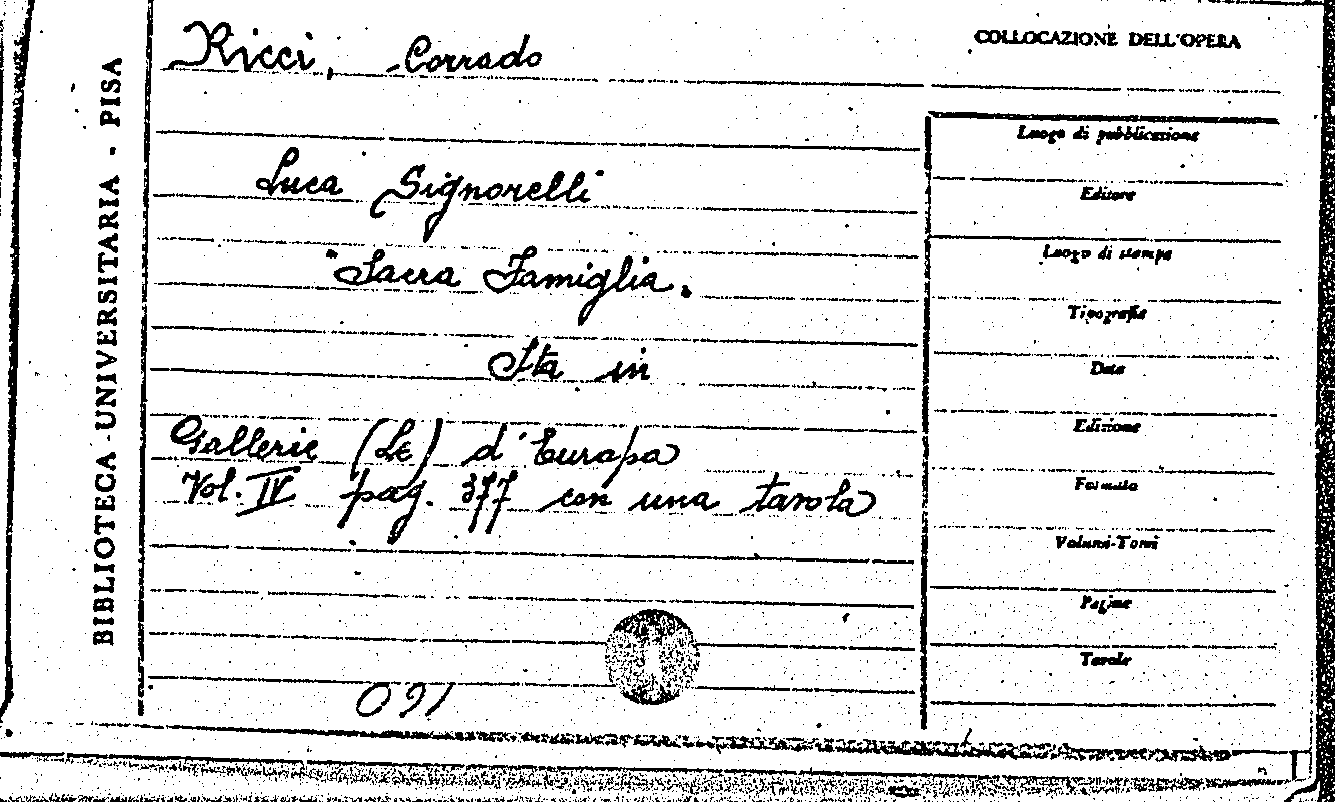 BIBLIOTECA UNIVERSITARIA - PISA
Ricci, Corrado
Luca Signorelli
"Sacra Famiglia"
Sta in
Gallerie (Le) d'Europa
Vol. IV pag. 377 con una tavola
091
COLLOCAZIONE DELL'OPERA
Luogo di pubblicazione
Editore
Luogo di stampa
Tipografia
Data
Edizione
Formato
Volumi-Tomi
Pagine
Tavole